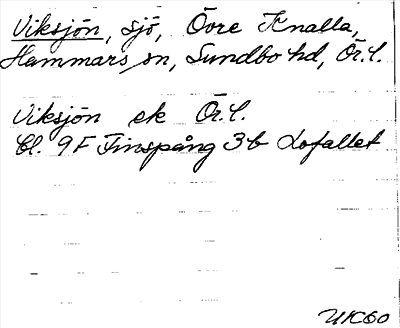 Viksjön, sjö, Övre Knalla,
Hammars sn, Sundbo hd, Ör. l.
Viksjön ek Ör. l.
Bl. 9F Finspång 3b Lofallet
UK60